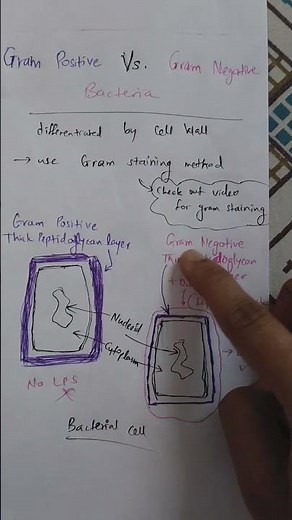 Gram Positive Vs. Gram Negative
Bacteria
differentiated by Cell Wall
→ use Gram staining method
Check out video
for gram staining
Gram Positive
Thick Peptidoglycan layer
Gram Negative
Nucleoid
Cytoplasm
No LPS
Bacterial cell